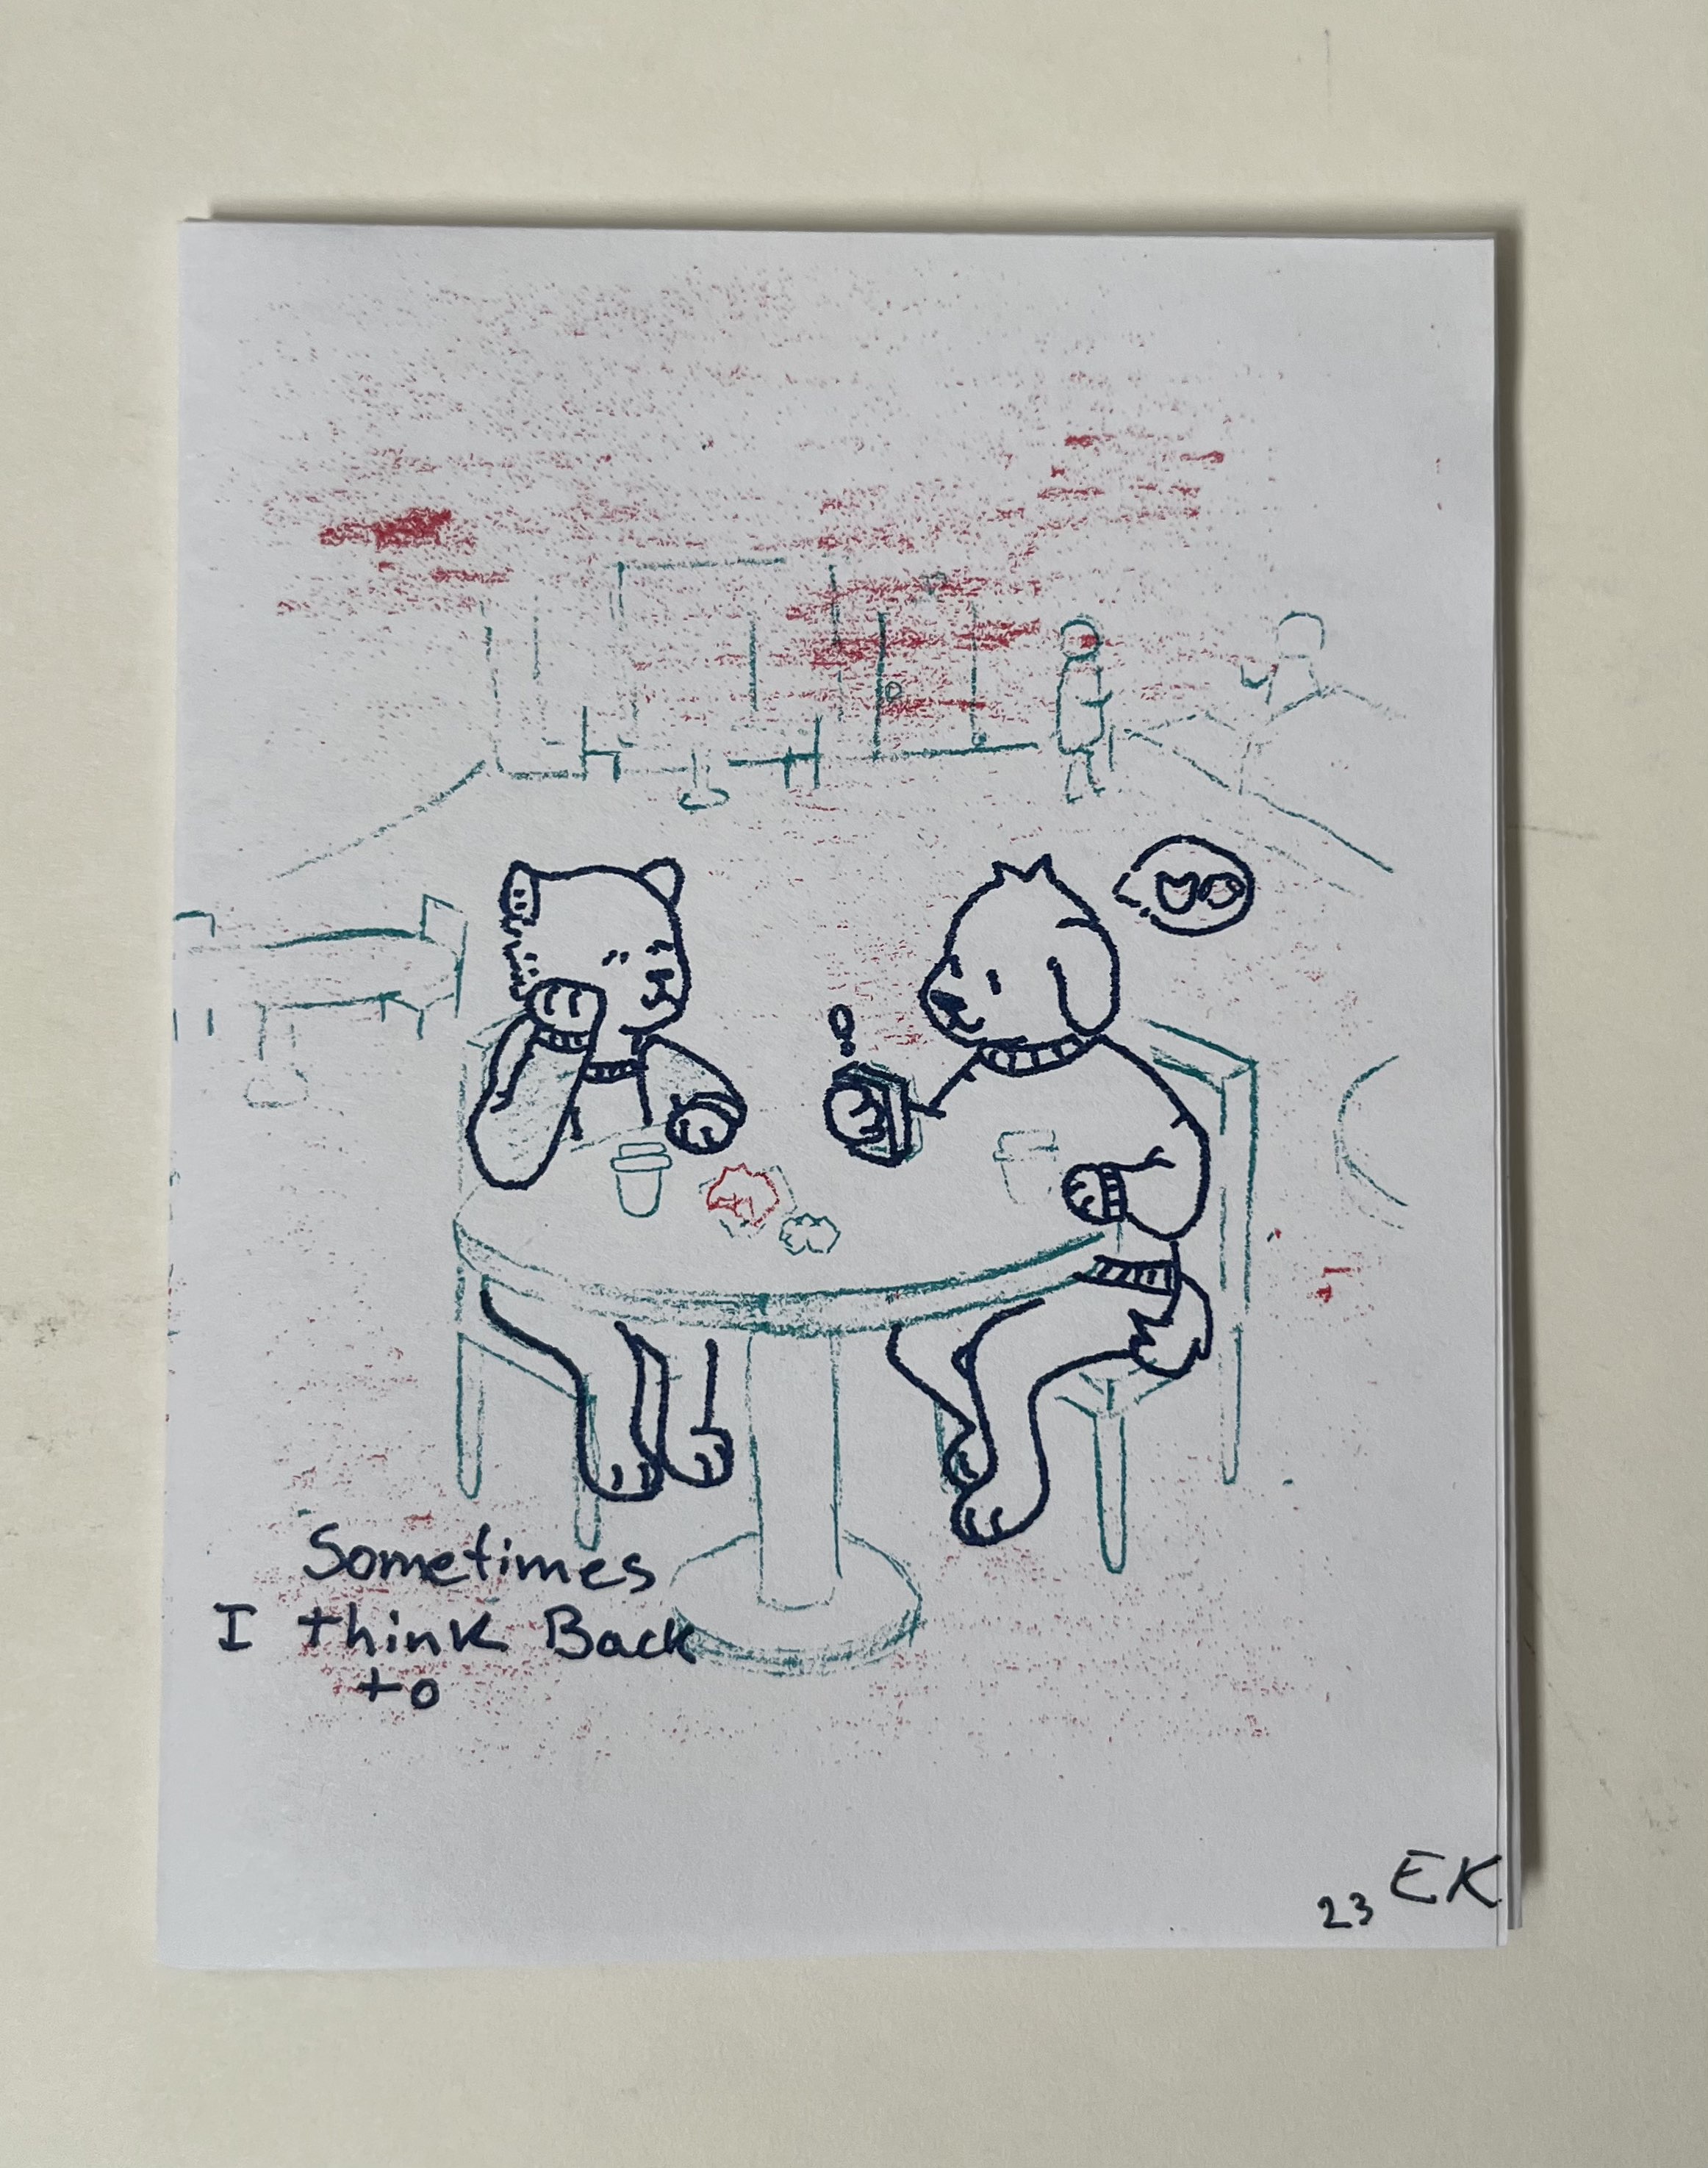 Sometimes
I think Back
to
23 EK